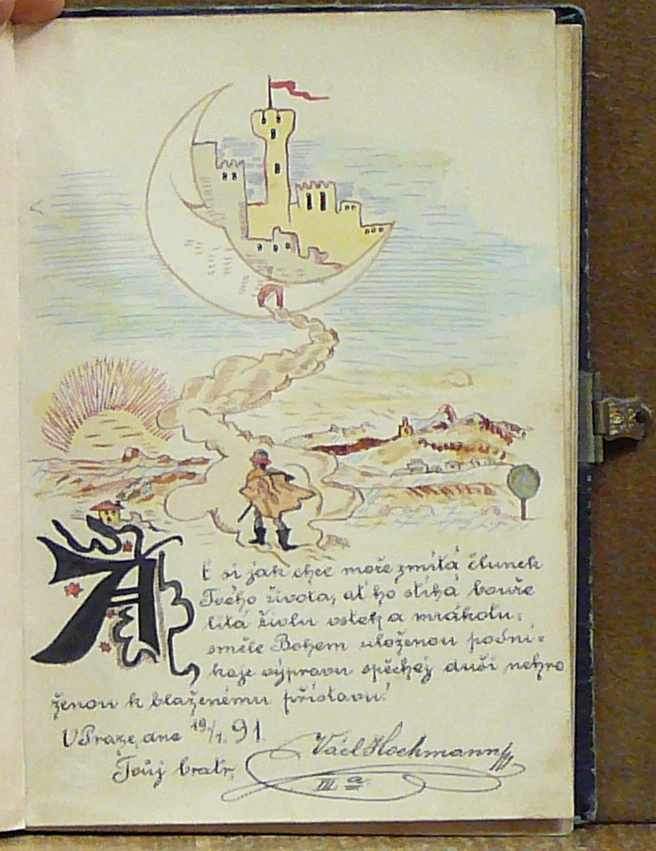 Ať si jak chce moře zmítá člunek
Tvého života, ať ho stíhá bouře
lítá živlu vztek a mrákotu;
směle Bohem uloženou podni-
kaje výpravu spěchej duší nehro
ženou k blaženému přístavu!
V Praze, dne 19/1. 91.
Tvůj bratr, Václ Hochmann
III a